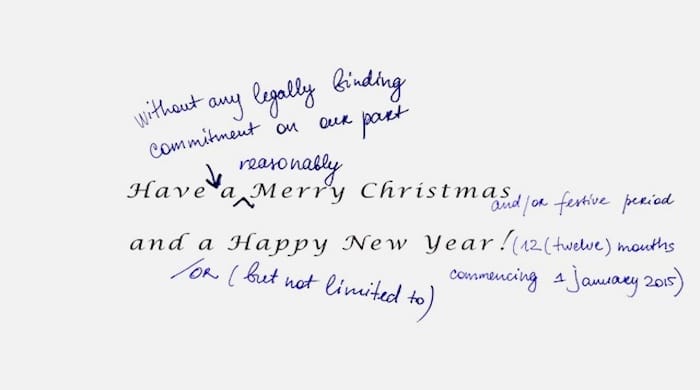 without any legally binding
commitment on our part
reasonably
Have a Merry Christmas
and/or festive period
and a Happy New Year!
(12 (twelve) months
/OR (but not limited to)
commencing 1 January 2015)